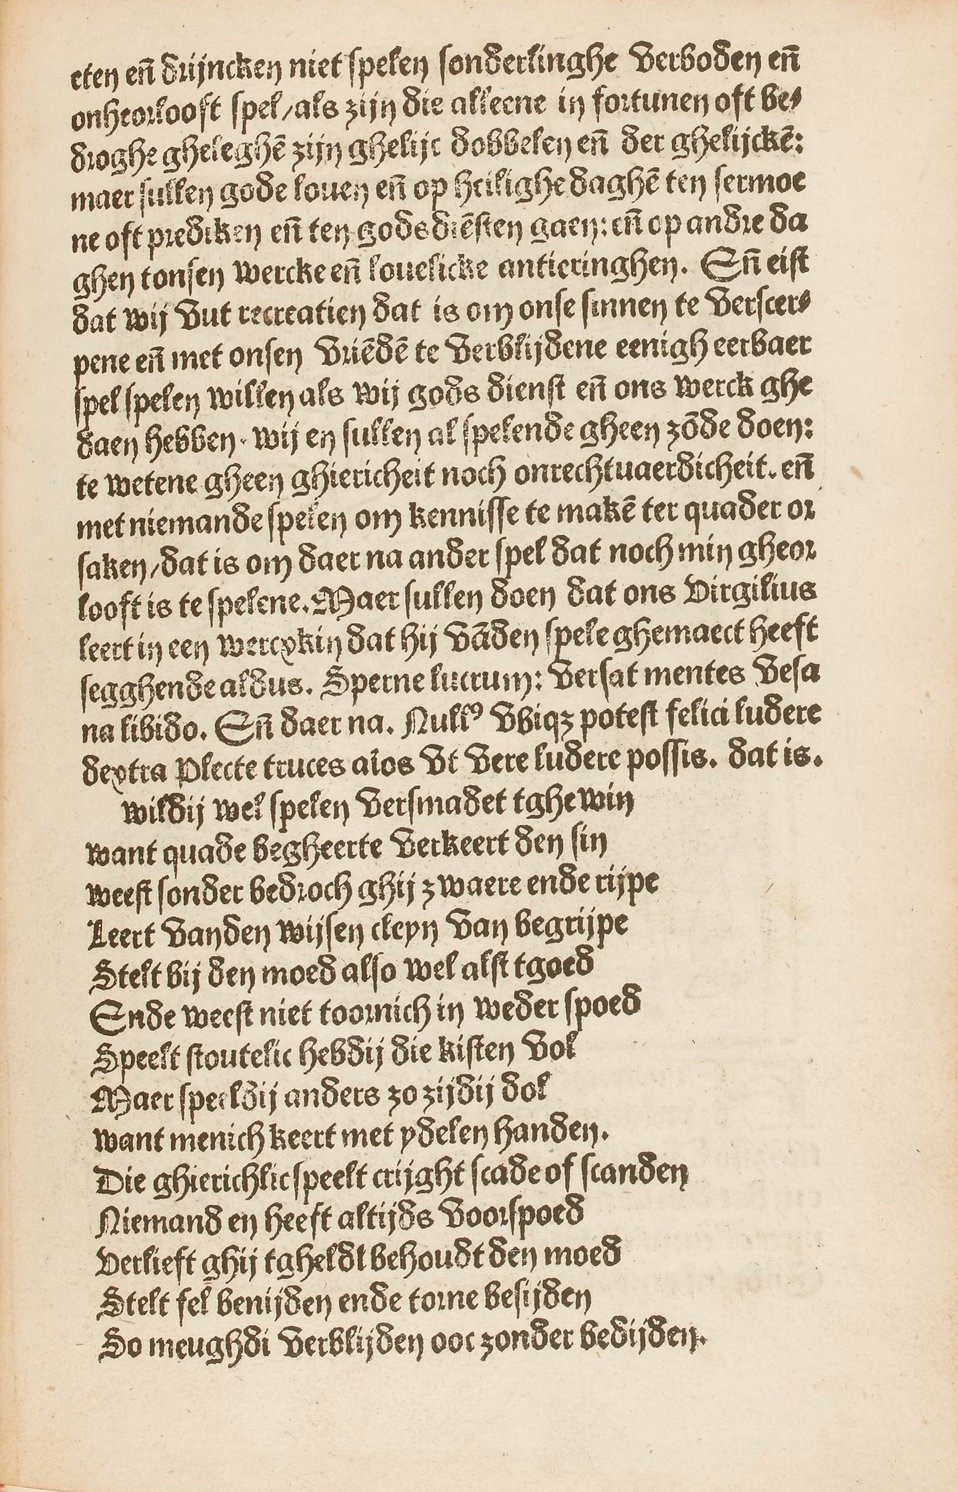 eten en̄ drijncken niet spelen sonderlinghe verboden en̄
onheorlooft spel/als zijn die alleene in fortunen oft be⸗
droghe gheleghē zijn ghelijc dobbelen en̄ der ghelijckē:
maer sullen gode louen en̄ op heilighe daghē ten sermoe
ne oft prediken en̄ ten gods diēsten gaen: en̄ op andre da
ghen tonsen wercke en̄ louelicke antieringhen. En̄ eist
dat wij vut recreatien dat is om onse sinnen te verscer⸗
pene en̄ met onsen vriēdē te verblijdene eenigh eerbaer
spel spelen willen als wij gods dienst en̄ ons werck ghe
daen hebben. wij en sullen al spelende gheen zōde doen:
te wetene gheen ghiericheit noch onrechtuaerdicheit. en̄
met niemande spelen om kennisse te makē ter quader or
saken/dat is om daer na ander spel dat noch min gheor
looft is te spelene. Maer sullen doen dat ons Virgilius
leert in een wercxkin dat hij vādен spele ghemaect heeft
segghende aldus. Sperne lucrum: versat mentes vesa
na libido. En̄ daer na. Nullꝰ vbiqꝫ potest felici ludere
dextra Plecte truces aīos vt vere ludere possis. dat is.
wildij wel spelen versmadet tghewin
want quade begheerte verkeert den sin
weest sonder bedroch ghij zwaere ende rijpe
Leert vanden wijsen cleyn van begrijpe
Stelt bij den moed also wel alst tgoed
Ende weest niet toornich in weder spoed
Speelt stoutelic hebdij die kisten vol
Maer speeldij anders zo zijdij dol
want menich keert met ydelen handen.
Die ghierichlic speelt crijght scade of scanden
Niemand en heeft altijds voorspoed
Verlieft ghij tgheldt behoudt den moed
Stelt fel benijden ende torne besijden
So meughdi verblijden ooc zonder bedijden.